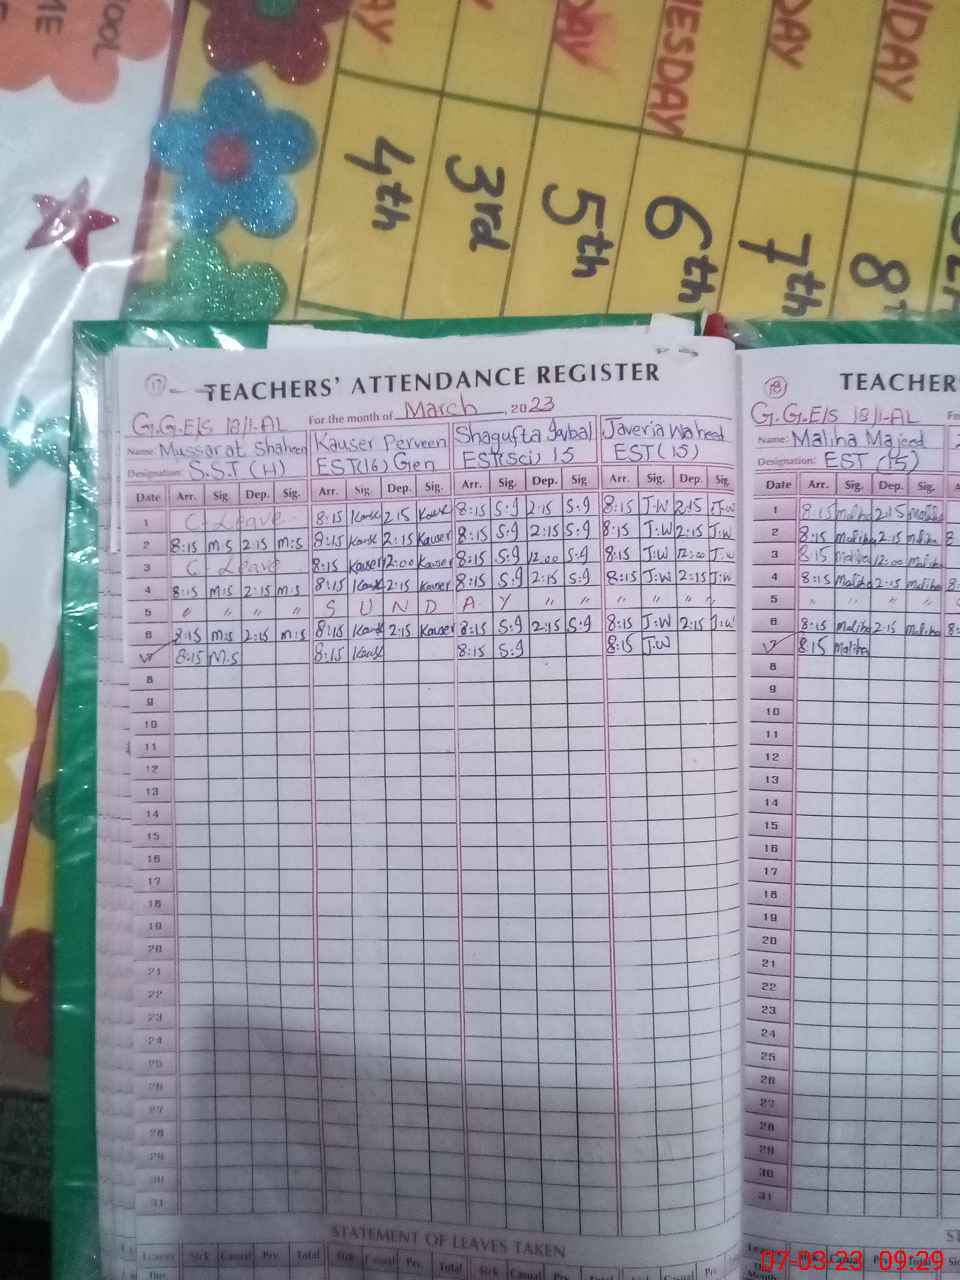 OOL
ME
AY
DAY
NESDAY
DAY
IDAY
4th
3rd
5th
6th
7th
8
17
TEACHERS' ATTENDANCE REGISTER
G.G.E/S 18/1-AL For the month of March, 2023
Name: Mussarat Shaheen Kauser Perveen Shagufta Iqbal Javeria Waheed
Designation: S.S.T (H) EST(16) Gen EST(Sci) 15 EST (15)
Date Arr. Sig. Dep. Sig. Arr. Sig. Dep. Sig. Arr. Sig. Dep. Sig Arr. Sig. Dep. Sig
1 C. Leave 8:15 Kauser 2:15 Kauser 8:15 S:9 2:15 S:9 8:15 J:W 2:15 J:W
2 8:15 m:s 2:15 m:s 8:15 Kauser 2:15 Kauser 8:15 S:9 2:15 S:9 8:15 J:W 2:15 J:W
3 C Leave 8:15 Kauser 12:00 Kauser 8:15 S:9 12:00 S:9 8:15 J:W 12:00 J:W
4 8:15 m:s 2:15 m:s 8:15 Kauser 2:15 Kauser 8:15 S:9 2:15 S:9 8:15 J:W 2:15 J:W
5 " " " " S U N D A Y " " " " " "
6 8:15 m:s 2:15 m:s 8:15 Kauser 2:15 Kauser 8:15 S:9 2:15 S:9 8:15 J:W 2:15 J:W
7 8:15 M.S 8:15 Kauser 8:15 S:9 8:15 J.W
8
9
10
11
12
13
14
15
16
17
18
19
20
21
22
23
24
25
26
27
28
29
30
31
STATEMENT OF LEAVES TAKEN
Leaves Sick Casual Prv. Total Sick Casual Prv. Total Sick Casual Prv. Total Sick Casual Prv.
Due
18
TEACHER
G.G.E/S 18/1-AL
Name: Maliha Majeed
Designation: EST (15)
Date Arr. Sig. Dep. Sig.
1 8:15 Maliha 2:15 Maliha
2 8:15 Maliha 2:15 Maliha
3 8:15 Maliha 12:00 Maliha
4 8:15 Maliha 2:15 Maliha
5 " " " "
6 8:15 Maliha 2:15 Maliha
7 8:15 Maliha
8
9
10
11
12
13
14
15
16
17
18
19
20
21
22
23
24
25
26
27
28
29
30
31
ST
07-03-23 09:29